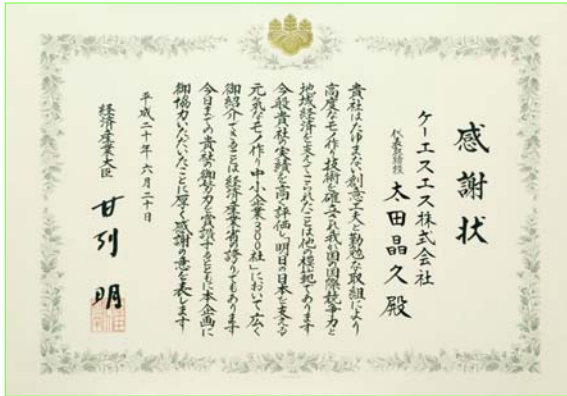 感謝状
ケーエスエス株式会社
代表取締役 太田晶久殿
貴社はたゆまない創意工夫と勤勉な取組により
高度なモノ作り技術を確立され我が国の国際競争力と
地域経済を支えてこられたことは他の模範であります
今般貴社の実績を高く評価し「明日の日本を支える
元気なモノ作り中小企業300社」において広く
御紹介できることは経済産業省の誇りでもあります
今日までの貴社の御努力を賞讃するとともに本企画に
御協力いただいたことに厚く感謝の意を表します
平成二十年六月二十日
経済産業大臣 甘利 明